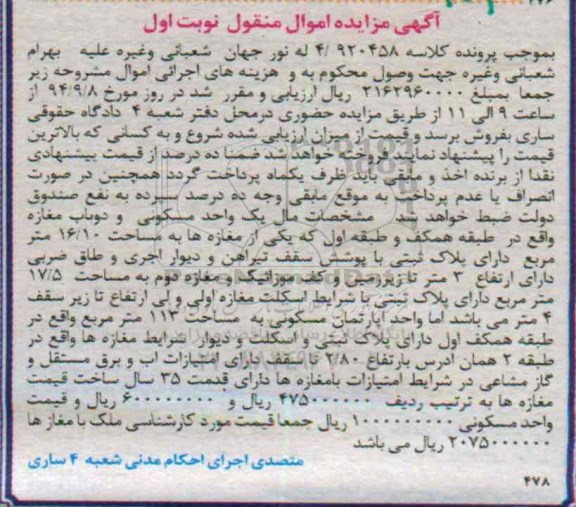 آگهی مزایده اموال منقول نوبت اول
بموجب پرونده کلاسه ۹۲۰۴۵۸ /۴ له نور جهان شعبانی وغیره علیه بهرام
شعبانی وغیره جهت وصول محکوم به و هزینه های اجرائی اموال مشروحه زیر
جمعا بمبلغ ۲۱۶۲۹۶۰۰۰۰ ریال ارزیابی و مقرر شد در روز مورخ ۹۴/۹/۸ از
ساعت ۹ الی ۱۱ از طریق مزایده حضوری درمحل دفتر شعبه ۴ دادگاه حقوقی
ساری بفروش برسد و قیمت از میزان ارزیابی شده شروع و به کسانی که بالاترین
قیمت را پیشنهاد نمایند فروخته خواهد شد ضمنا ده درصد از قیمت پیشنهادی
نقدا از برنده اخذ و مابقی باید ظرف یکماه پرداخت گردد همچنین در صورت
انصراف یا عدم پرداخت به موقع مابقی وجه ده درصد سپرده به نفع صندوق
دولت ضبط خواهد شد مشخصات مال یک واحد مسکونی و دوباب مغازه
واقع در طبقه همکف و طبقه اول که یکی از مغازه ها به مساحت ۱۶/۱۰ متر
مربع دارای پلاک ثبتی با پوشش سقف تیراهن و دیوار اجری و طاق ضربی
دارای ارتفاع ۳ متر تا زیرزمین و کف موزائیک و مغازه دوم به مساحت ۱۷/۵
متر مربع دارای پلاک ثبتی با شرایط اسکلت مغازه اولی و لی ارتفاع تا زیر سقف
۴ متر می باشد اما واحد اپارتمان مسکونی به مساحت ۱۱۳ متر مربع واقع در
طبقه همکف اول دارای پلاک ثبتی و اسکلت و دیوار شرایط مغازه ها واقع در
طبقه ۲ همان ادرس بارتفاع ۲/۸۰ تا سقف دارای امتیازات اب و برق مستقل و
گاز مشاعی در شرایط امتیازات بامغازه ها دارای قدمت ۳۵ سال ساخت قیمت
مغازه ها به ترتیب ردیف ۴۷۵۰۰۰۰۰۰ ریال و ۶۰۰۰۰۰۰۰۰ ریال و قیمت
واحد مسکونی ۱۰۰۰۰۰۰۰۰۰ ریال جمعا قیمت مورد کارشناسی ملک با مغاز ها
۲۰۷۵۰۰۰۰۰۰ ریال می باشد
متصدی اجرای احکام مدنی شعبه ۴ ساری
۴۷۸